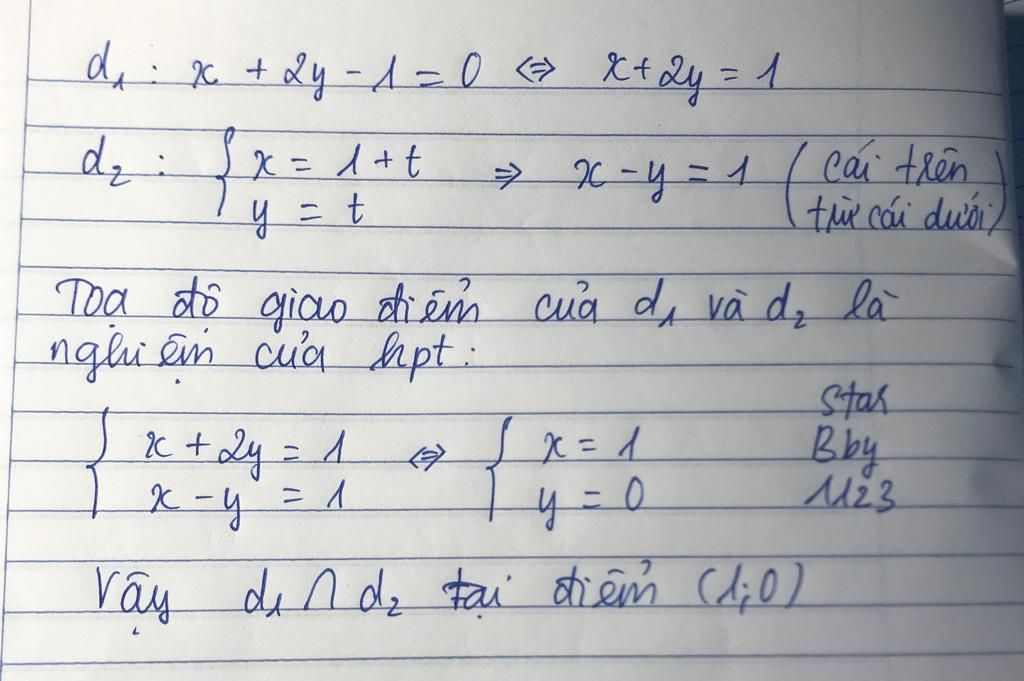 d₁ : x + 2y - 1 = 0 ⇔ x + 2y = 1
d₂ : { x = 1 + t ⇒ x - y = 1 ( cái trên
y = t trừ cái dưới )
Tọa độ giao điểm của d₁ và d₂ là
nghiệm của hpt :
Star
{ x + 2y = 1 ⇔ { x = 1 Bby
x - y = 1 y = 0 1123
Vậy d₁ ∩ d₂ tại điểm (1;0)